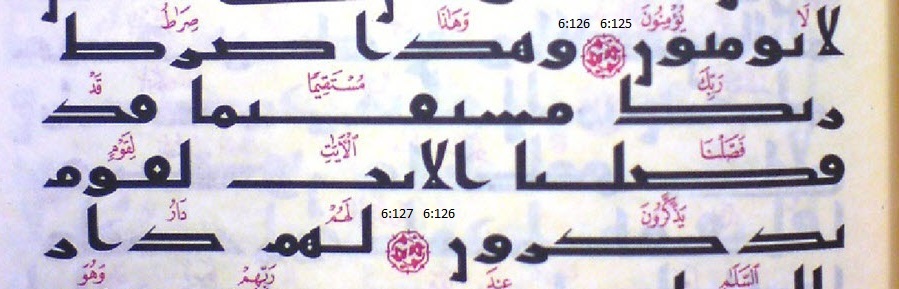 لَا يُؤْمِنُونَ 6:125 6:126 وَهَٰذَا صِرَٰطُ
لا يومنون وهدا صرط
رَبِّكَ مُسْتَقِيمًا قَدْ
ربك مستقيما قد
فَصَّلْنَا ٱلْآيَٰتِ لِقَوْمٍ
فصلنا الايت لقوم
يَذَّكَّرُونَ 6:126 6:127 لَهُمْ دَارُ
يدكرون لهم دار
ٱلسَّلَٰمِ عِندَ رَبِّهِمْ وَهُوَ